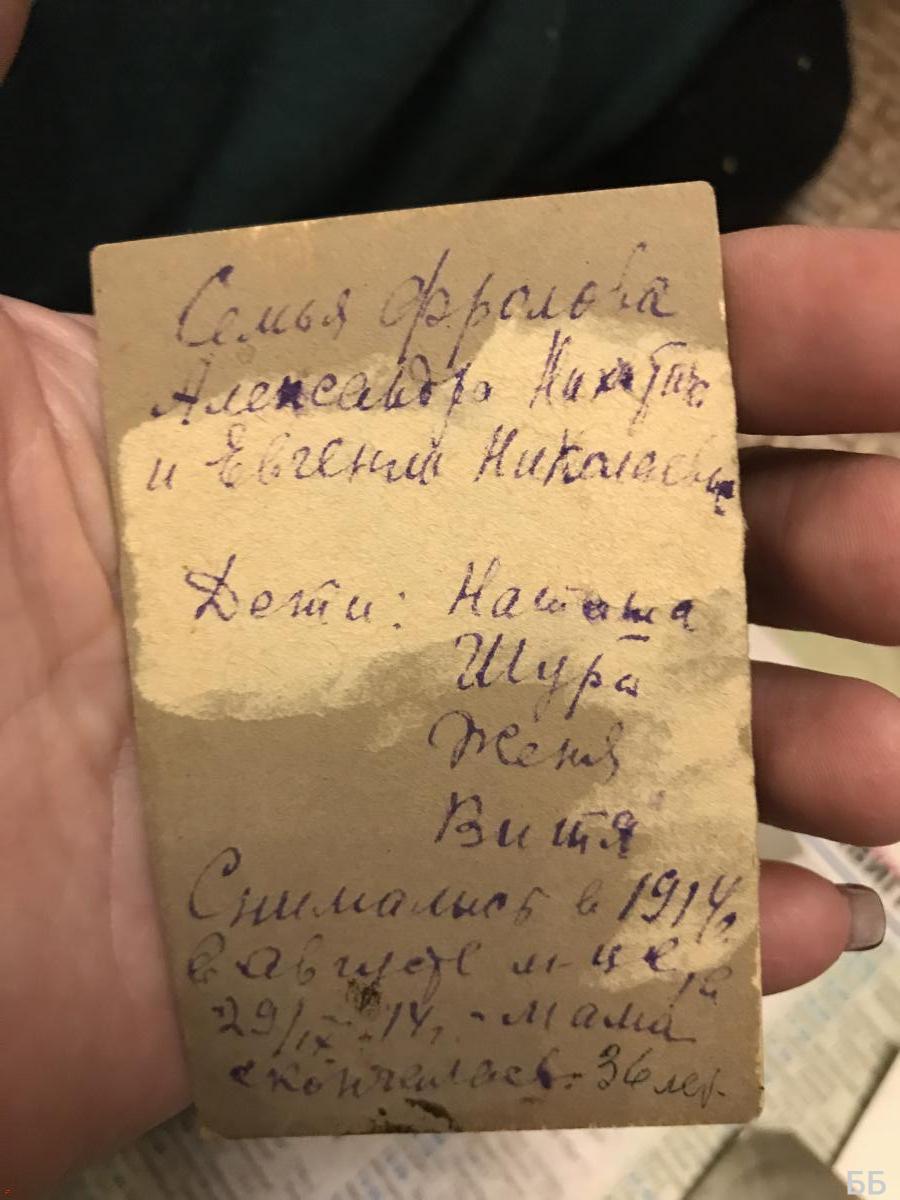 Семья Фролова
Александра
и Евгении Николаевны
Дети: Наташа
Шура
Женя
Витя
Снимались в 1914г.
в августе м-це,
29/IX-14г. - мама
скончалась. 36 лет.
ББ